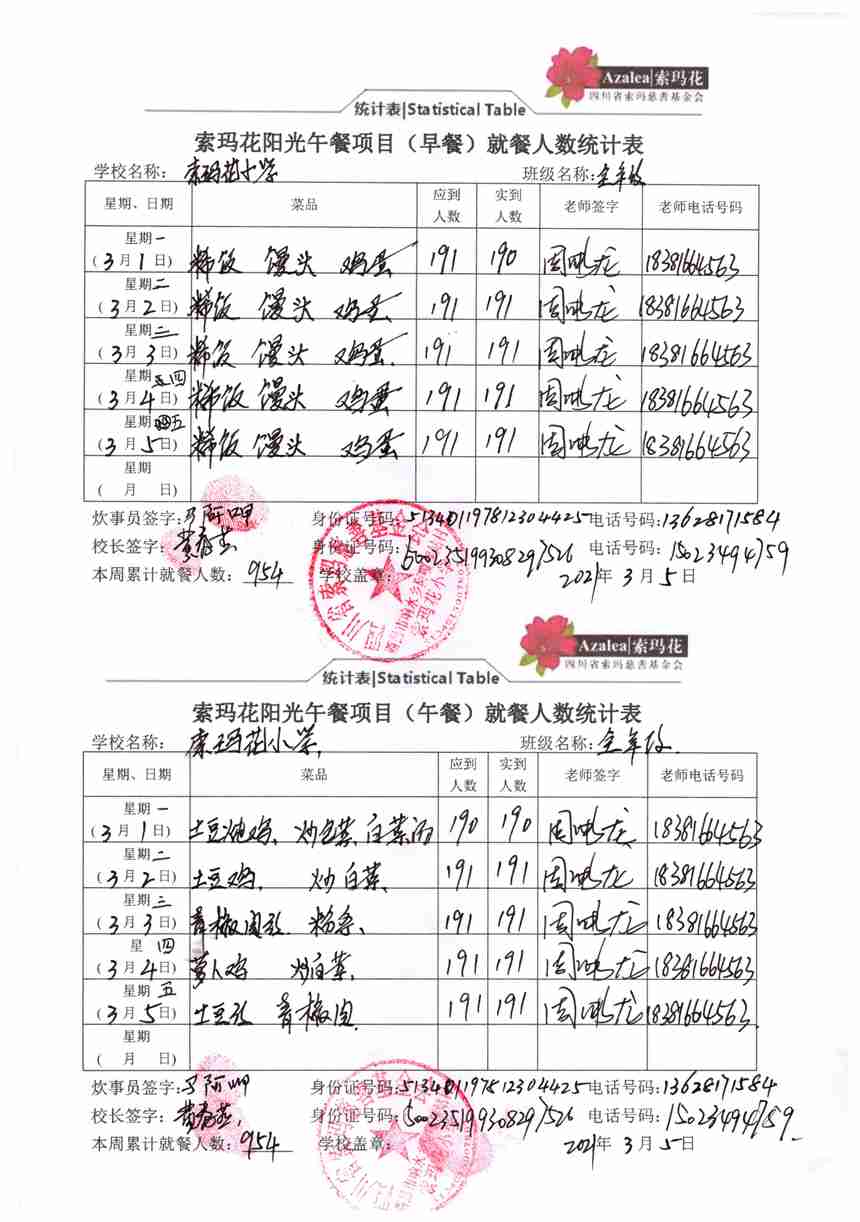 Azalea|索玛花
四川省索玛慈善基金会
统计表|Statistical Table
索玛花阳光午餐项目（早餐）就餐人数统计表
学校名称： 索玛花小学 班级名称：全年级
星期、日期 菜品 应到人数 实到人数 老师签字 老师电话号码
星期一
(3月1日) 稀饭 馒头 鸡蛋 191 190 18381664563
星期二
(3月2日) 稀饭 馒头 鸡蛋 191 191 18381664563
星期三
(3月3日) 稀饭 馒头 鸡蛋 191 191 18381664563
星期四
(3月4日) 稀饭 馒头 鸡蛋 191 191 18381664563
星期五
(3月5日) 稀饭 馒头 鸡蛋 191 191 18381664563
星期
( 月 日)
炊事员签字: 身份证号码:513401197812304425 电话号码:13628171584
校长签字: 身份证号码:500235199308297526 电话号码: 15023494759
本周累计就餐人数: 954 学校盖章: 2021年 3月5日
Azalea|索玛花
四川省索玛慈善基金会
统计表|Statistical Table
索玛花阳光午餐项目（午餐）就餐人数统计表
学校名称： 索玛花小学. 班级名称：全年级.
星期、日期 菜品 应到人数 实到人数 老师签字 老师电话号码
星期一
(3月1日) 土豆炖鸡、炒包菜 白菜汤 190 190 18381664563
星期二
(3月2日) 土豆鸡, 炒白菜. 191 191 18381664563
星期三
(3月3日) 青椒肉丝 粉条、 191 191 18381664563
星 四
(3月4日) 萝卜鸡 炒白菜. 191 191 18381664563
星期五
(3月5日) 土豆丝 青椒肉 191 191 18381664563.
星期
( 月 日)
炊事员签字: 身份证号码:513401197812304425 电话号码:13628171584
校长签字: 身份证号码:500235199308297526 电话号码: 15023494759.
本周累计就餐人数: 954 学校盖章: 2021年 3月5日